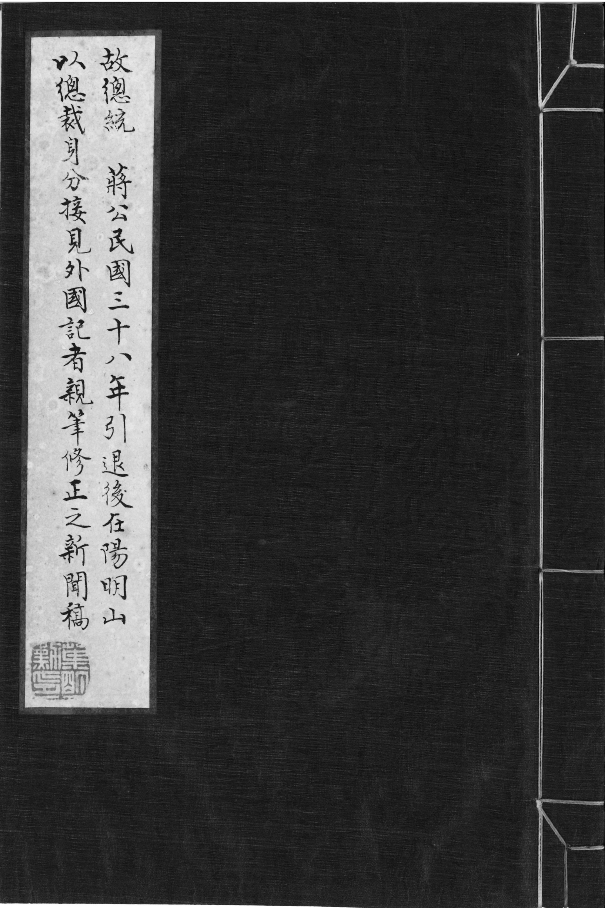 故總統　蔣公民國三十八年引退後在陽明山
以總裁身分接見外國記者親筆修正之新聞稿